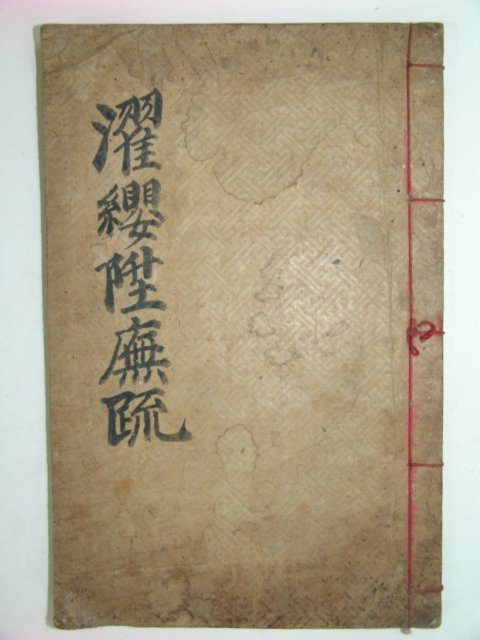 濯纓陞廡疏